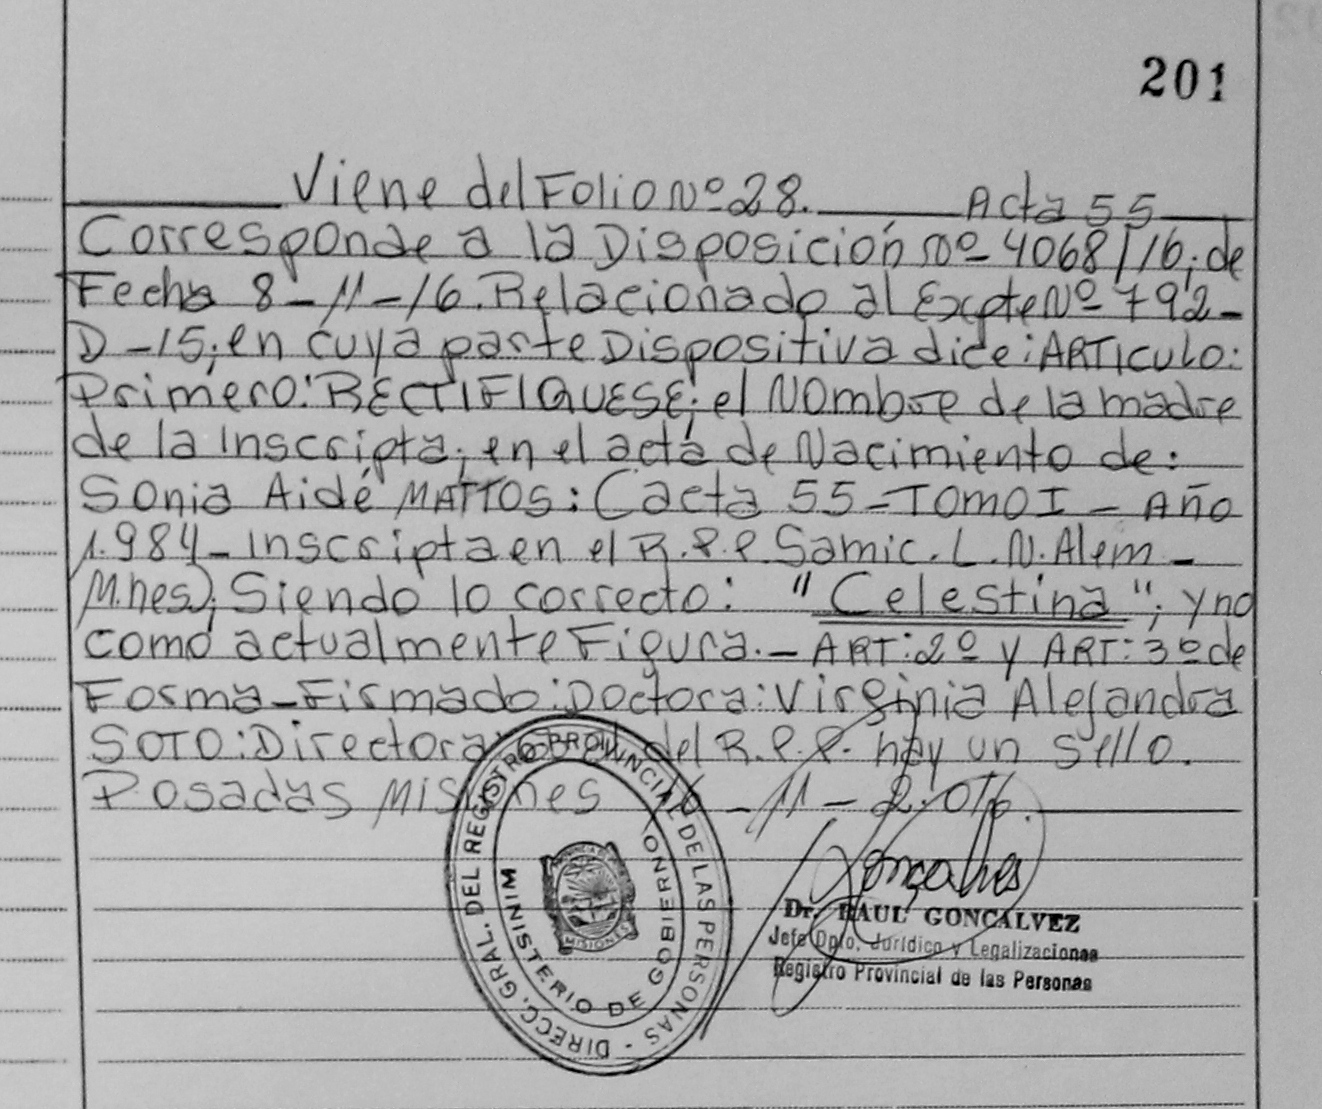 201
Viene del Folio Nº 28. Acta 55
Corresponde a la Disposición Nº 4068/16; de
Fecha 8-11-16. Relacionado al Expte Nº 792-
D-15; en cuya parte Dispositiva dice: ARTICULO:
Primero: RECTIFIQUESE; el Nombre de la madre
de la Inscripta; en el acta de Nacimiento de:
Sonia Aidé MATTOS: (acta 55-TOMO I - Año
1.984- Inscripta en el R.P.P. Samic. L. N. Alem -
M.nes); Siendo lo correcto: "Celestina"; y no
como actualmente Figura.- ART: 2º y ART: 3º de
Forma-Firmado: Doctora: Virginia Alejandra
SOTO: Directora del R.P.P. hay un sello.
Posadas Misiones -11-2.016.
DIRECC. GRAL. DEL REGISTRO PROVINCIAL DE LAS PERSONAS -
MINISTERIO DE GOBIERNO
PROVINCIA DE
MISIONES
Goncalves
Dr. RAUL GONCALVEZ
Jefe Dpto. Jurídico y Legalizaciones
Registro Provincial de las Personas